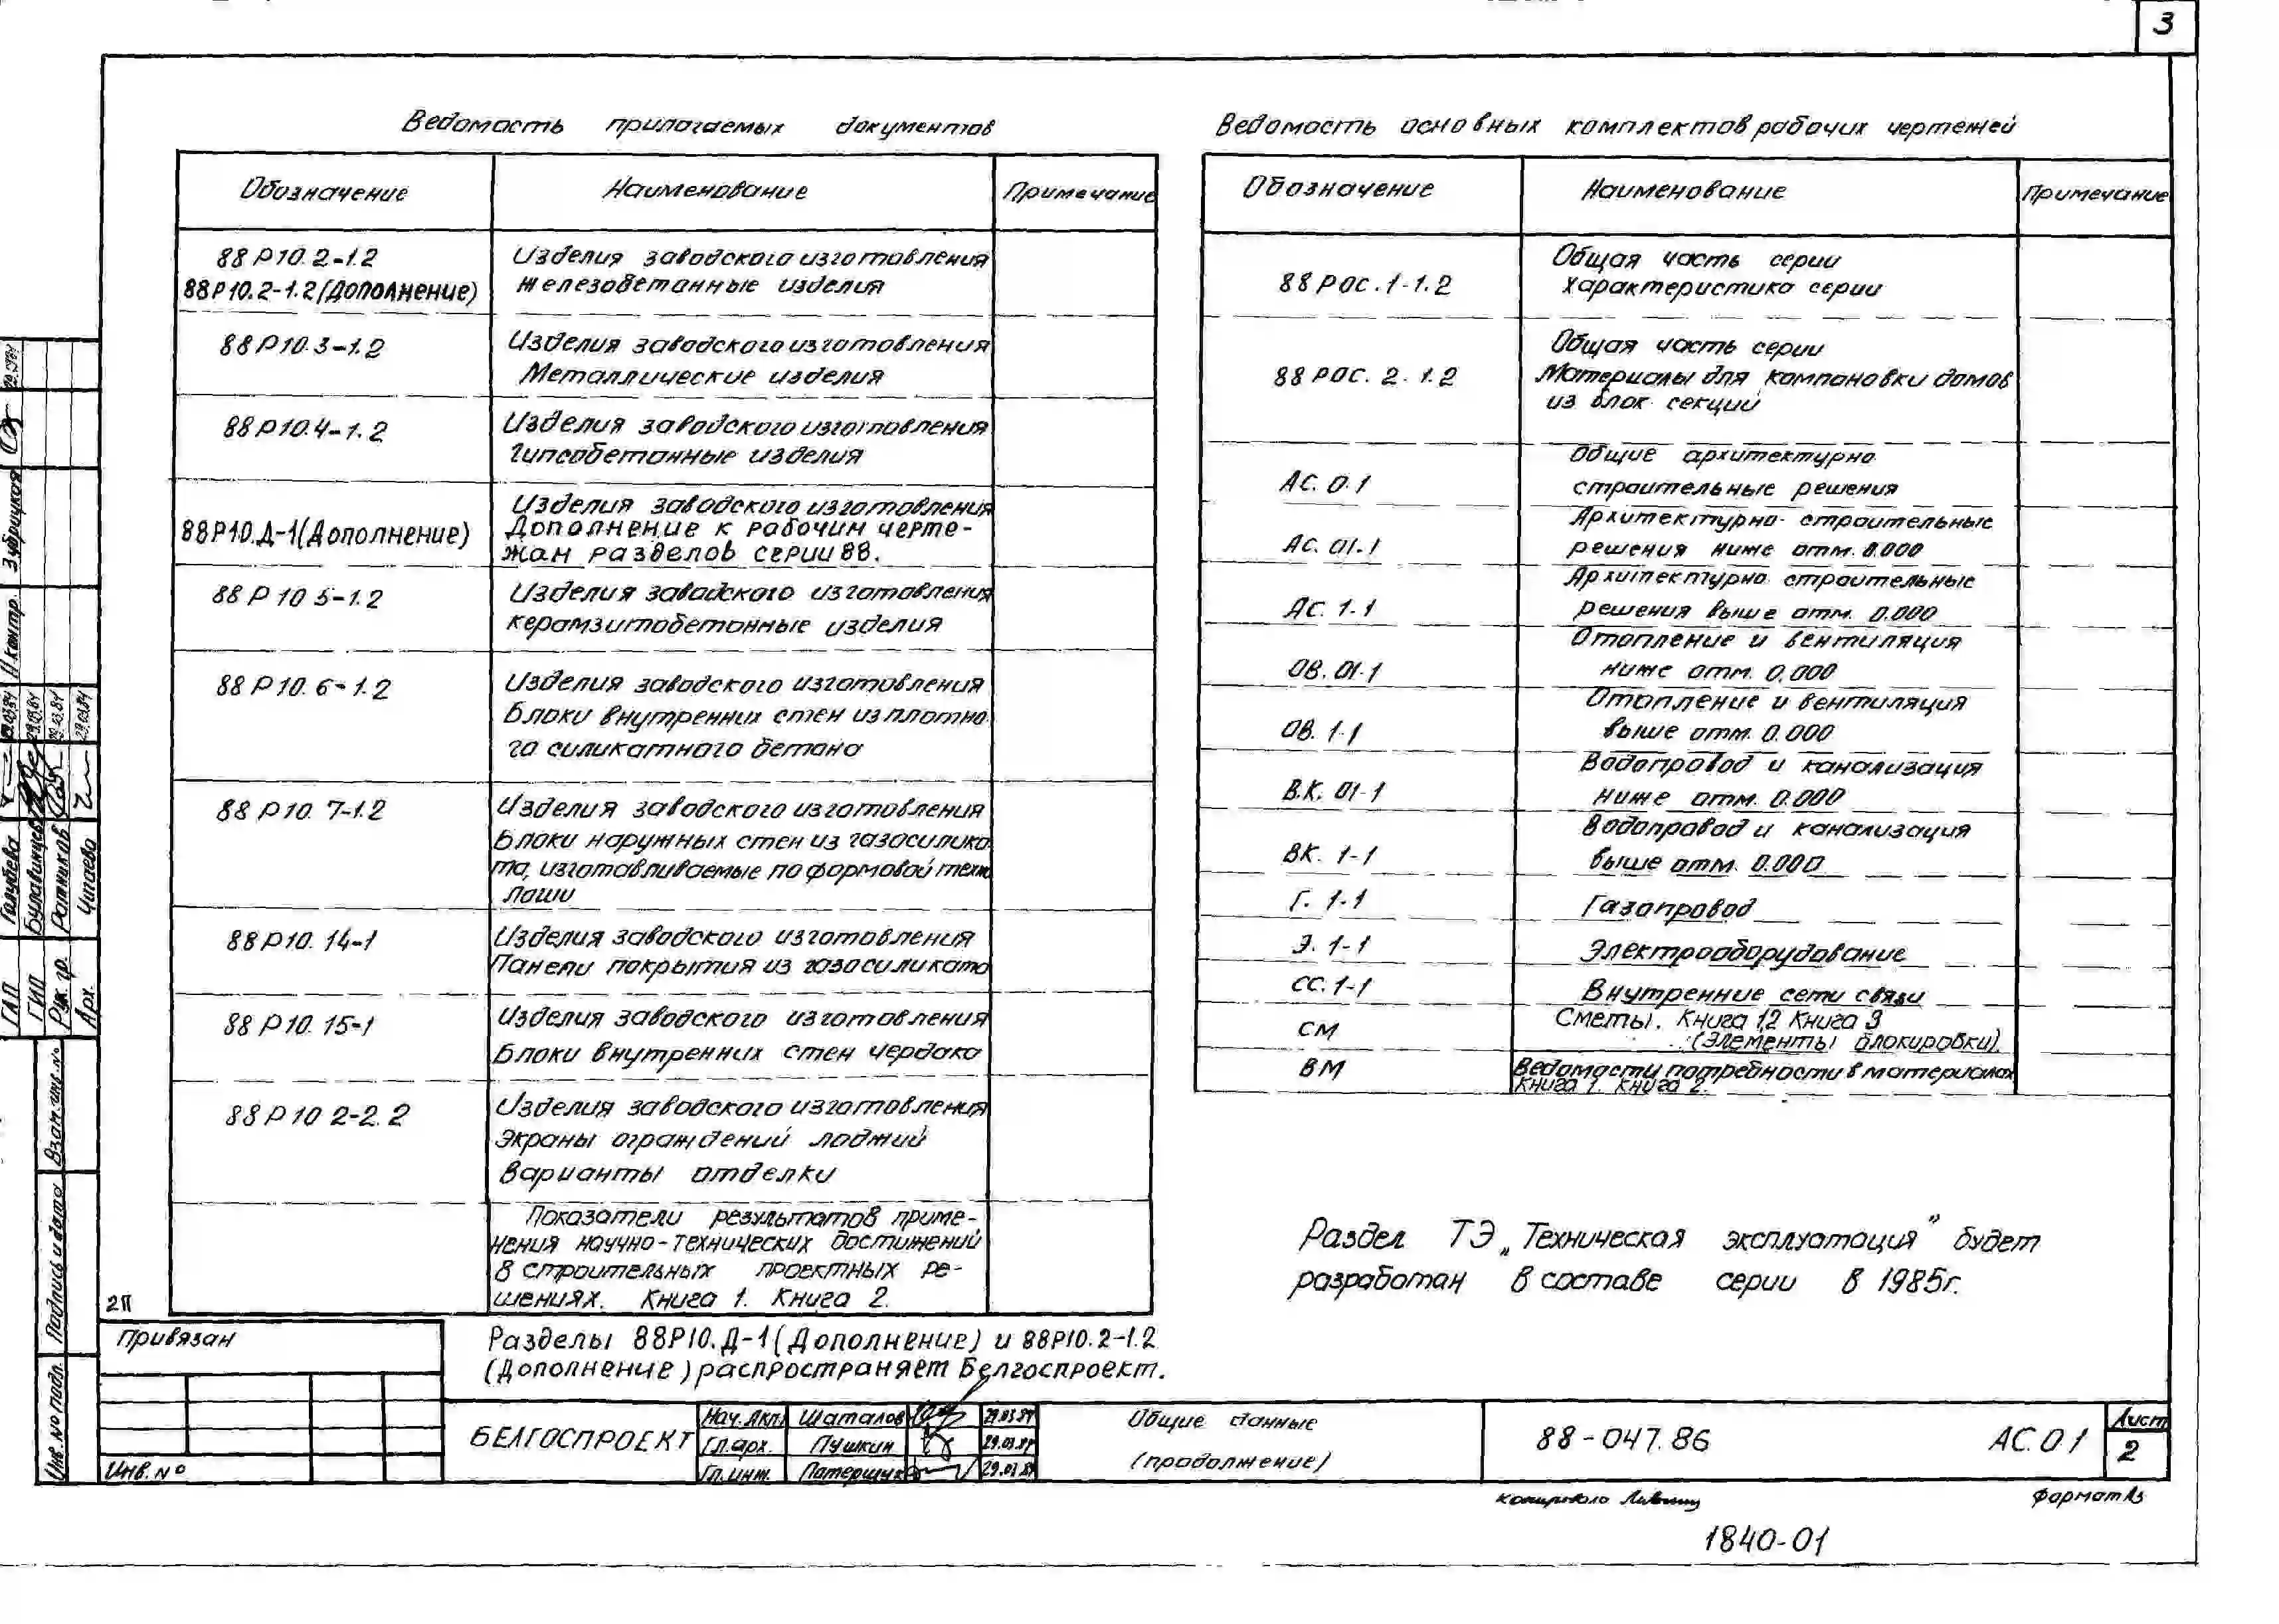 3
Ведомость прилагаемых документов
Обозначение Наименование Примечание
88Р10.2-1.2 Изделия заводского изготовления
88Р10.2-1.2 (Дополнение) Железобетонные изделия
88Р10.3-1.2 Изделия заводского изготовления
Металлические изделия
88Р10.4-1.2 Изделия заводского изготовления
Гипсобетонные изделия
Изделия заводского изготовления
88Р10.Д-1(Дополнение) Дополнение к рабочим черте-
жам разделов серии 88.
88Р10 5-1.2 Изделия заводского изготовления
керамзитобетонные изделия
88Р10.6-1.2 Изделия заводского изготовления
Блоки внутренних стен из плотно
го силикатного бетона
88Р10.7-1.2 Изделия заводского изготовления
Блоки наружных стен из газосилика
та, изготавливаемые по формовой техн
логии
88Р10.14-1 Изделия заводского изготовления
Панели покрытия из газосиликата
88Р10.15-1 Изделия заводского изготовления
Блоки внутренних стен чердака
88Р10 2-2.2 Изделия заводского изготовления
Экраны ограждений лоджий
Варианты отделки
Показатели результатов приме-
нения научно-технических достижений
в строительных проектных ре-
шениях. Книга 1. Книга 2.
Ведомость основных комплектов рабочих чертежей
Обозначение Наименование Примечание
Общая часть серии
88Р0С.1-1.2 Характеристика серии
Общая часть серии
88Р0С.2.1.2 Материалы для компоновки домов
из блок секций
Общие архитектурно
АС.0.1 строительные решения
Архитектурно-строительные
АС.01.1 решения ниже отм. 0.000
Архитектурно строительные
АС.1-1 решения выше отм. 0.000
Отопление и вентиляция
ОВ.01-1 ниже отм. 0,000
Отопление и вентиляция
ОВ.1-1 выше отм. 0.000
Водопровод и канализация
В.К.01-1 ниже отм. 0.000
Водопровод и канализация
ВК.1-1 выше отм. 0.000
Г.1-1 Газопровод
Э.1-1 Электрооборудование
СС.1-1 Внутренние сети связи
СМ Сметы. Книга 1,2 Книга 3
(Элементы блокировки).
ВМ Ведомости потребности в материалах
Книга 1. Книга 2.
Раздел ТЭ „Техническая эксплуатация" будет
разработан в составе серии в 1985г.
2П
Разделы 88Р10.Д-1(Дополнение) и 88Р10.2-1.2
(Дополнение) распространяет Белгоспроект.
Привязан
Инв.№
БЕЛГОСПРОЕКТ
Нач. АКП Шаталов 29.03.84
Гл.арх. Пушкин 29.03.84
Гл.инж. Патершук 29.03.84
Общие данные
(продолжение)
88-047.86 АС.0.1
Лист
2
копировала Формат А3
1840-01
Н.контр. Зубрицкая
ГАП Голубева 29.03.84
ГИП 29.03.84
Рук. гр. Ротников 29.03.84
Арх. Чипаева 29.03.84
Взам.инв.№
Подпись и дата
Инв.№ подл.